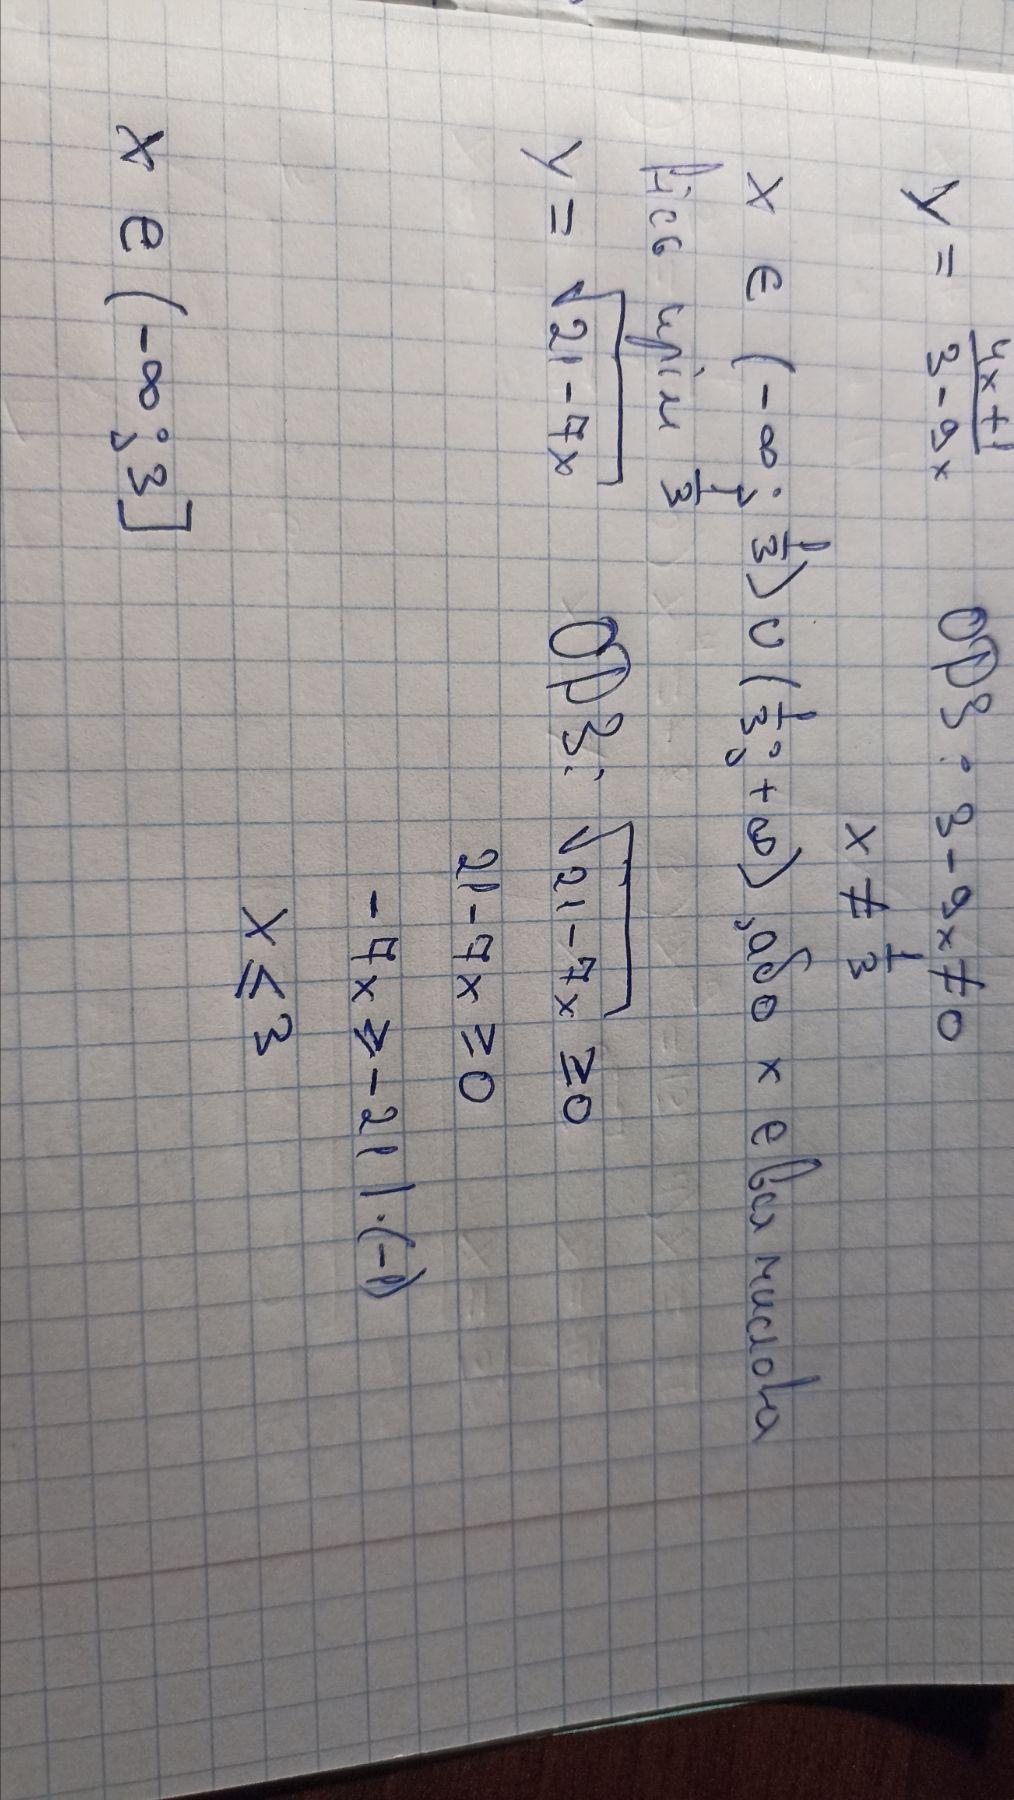 y = (4x+1)/(3-9x) ОРЗ: 3-9x≠0
x ≠ 1/3
x ∈ (-∞; 1/3) ∪ (1/3; +∞), або x є вся числова
вісь крім 1/3
y = √(21-7x) ОРЗ: √(21-7x) ≥0
21-7x ≥0
-7x ≥ -21 | ·(-1)
x ≤ 3
x є (-∞; 3]